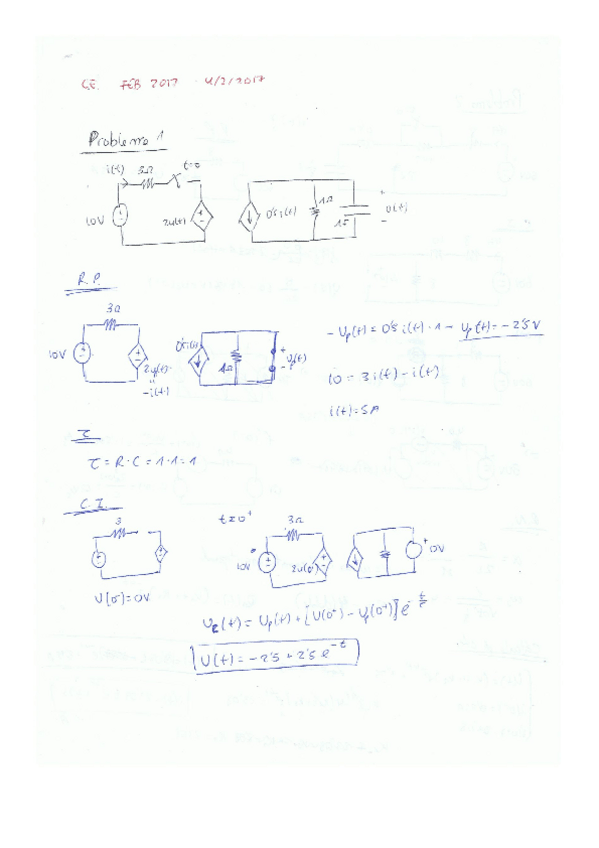 C.E. FEB 2017 4/2/2017
Problema 1
i(t) 3Ω t=0
10V 2u(t) 0'5 i(t) 1Ω 1F + u(t) -
R.P.
3Ω
10V 2up(t) 0'5i(t) 1Ω + up(t) -
-i(t)
- Up(t) = 0'5 i(t)·1 → Up(t) = -2'5V
10 = 3i(t) - i(t)
i(t) = 5A
τ
τ = R·C = 1·1 = 1
C.I.
3 t=0⁺ 3Ω
10V 2u(0⁺) + 0V
U(0⁻) = 0V
Uc(t) = Up(t) + [U(0⁺) - Up(0⁺)] e^-t/τ
U(t) = -2'5 + 2'5 e^-t